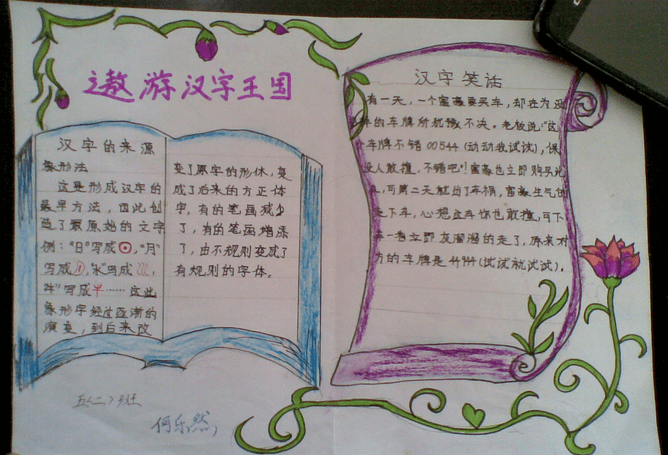 遨游汉字王国
汉字的来源
象形法
这是形成汉字的
最早方法，因此创
造了最原始的文字
例："日"写成"月"
写成"水"写成
"写成……这些
象形字经过逐渐的
演变，到后来改
变了原字的形体，变
成了后来的方正体
字，有的笔画减少
了，有的笔画增添
了，由不规则变成了
有规则的字体。
汉字笑话
有一天，一个富豪要买车，却在为选
车的车牌所犹豫不决。老板说："这
个车牌不错00544（动动我试试），保
没人敢撞，不错吧"！富豪也立即购买此
，可第二天就出了车祸，富豪生气的
走下车，心想这车你也敢撞，可下
一看立即灰溜溜的走了，原来对
方的车牌是44944（试试就试试）。
五（二）班
何乐然